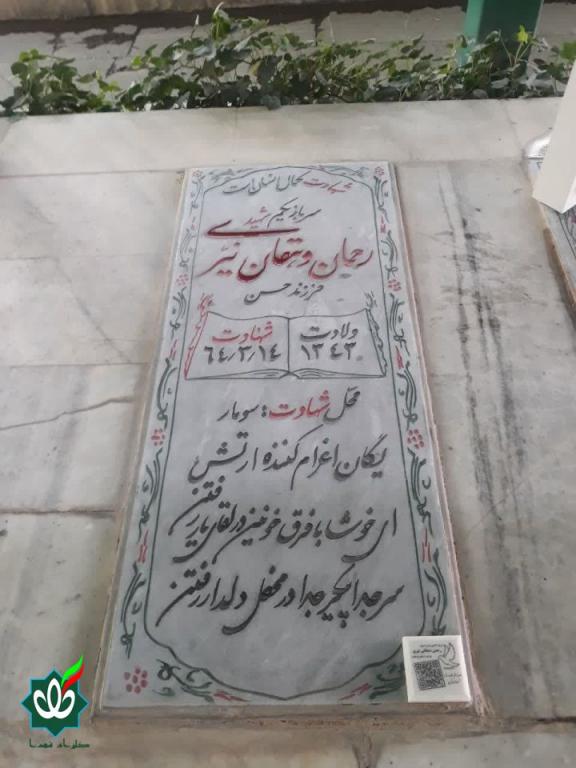 شهادت کمال انسان است
سرباز یکم شهید
رحمان دهقان نیری
فرزند حسن
ولادت
۱۳۴۳
شهادت
۶۴/۳/۱۴
محل شهادت: سومار
یگان اعزام کننده ارتش
ای خوشا با فرق خونین در لقای یار رفتن
سر جدا پیکر جدا در محفل دلدار رفتن
گلزار شهدا